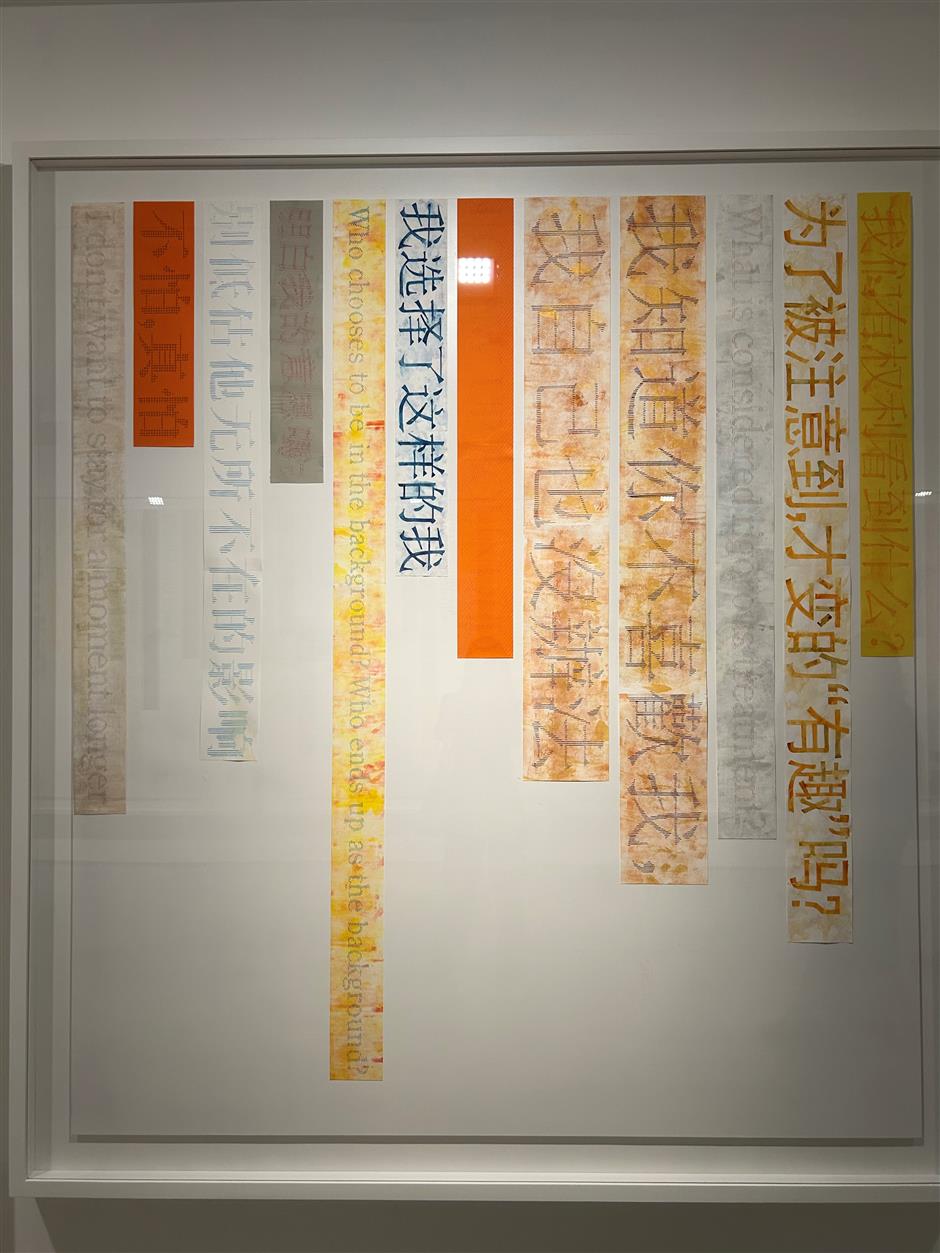 我们有权利看到什么?
为了被注意到,才变的“有趣”吗?
What is considered
我知道你不喜歡我;
我自己也没辦法
我选择了这样的我
Who chooses to be in the background? Who ends up as the background?
别低估他无所不在的影响
不怕,
I don't want to stay a moment longer